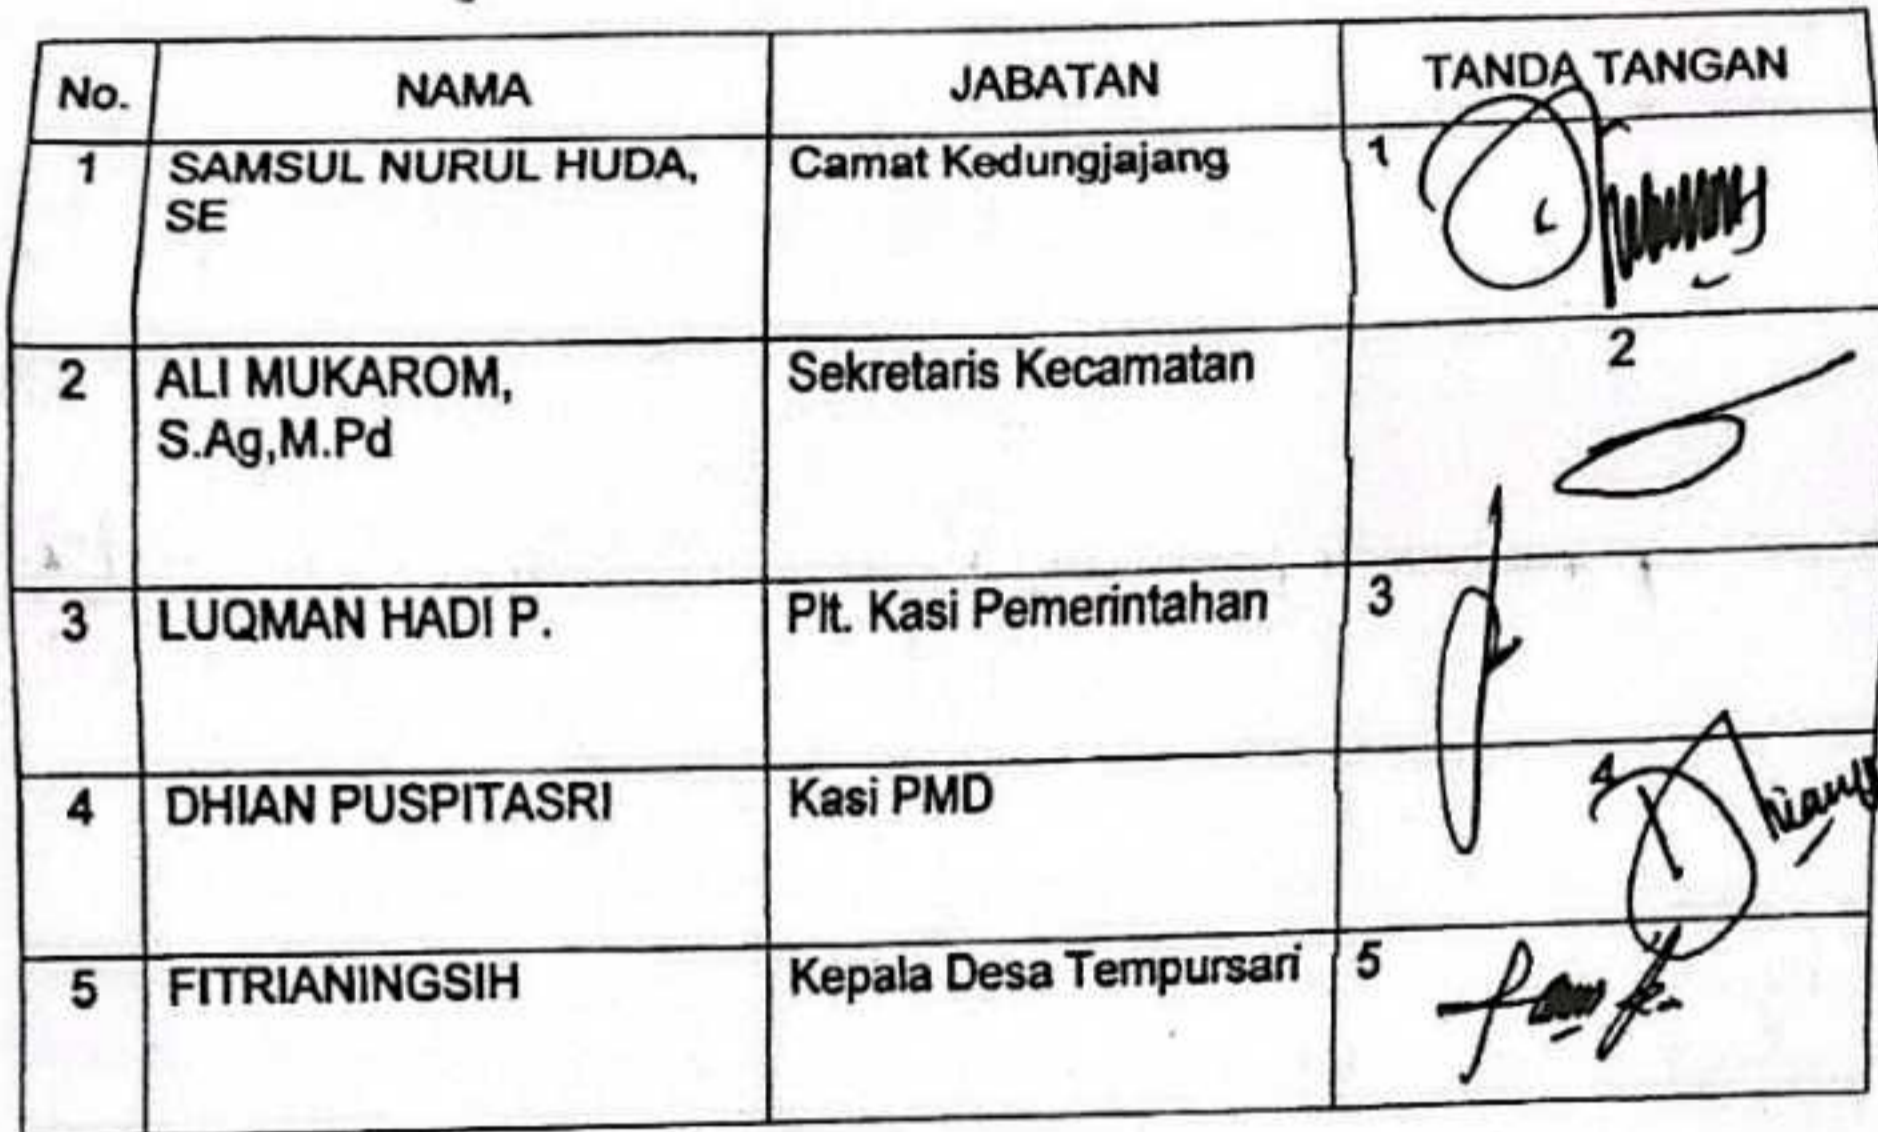 No. NAMA JABATAN TANDA TANGAN
1 SAMSUL NURUL HUDA, Camat Kedungjajang 1
SE
2 ALI MUKAROM, Sekretaris Kecamatan 2
S.Ag,M.Pd
3 LUQMAN HADI P. Plt. Kasi Pemerintahan 3
4 DHIAN PUSPITASRI Kasi PMD 4
5 FITRIANINGSIH Kepala Desa Tempursari 5